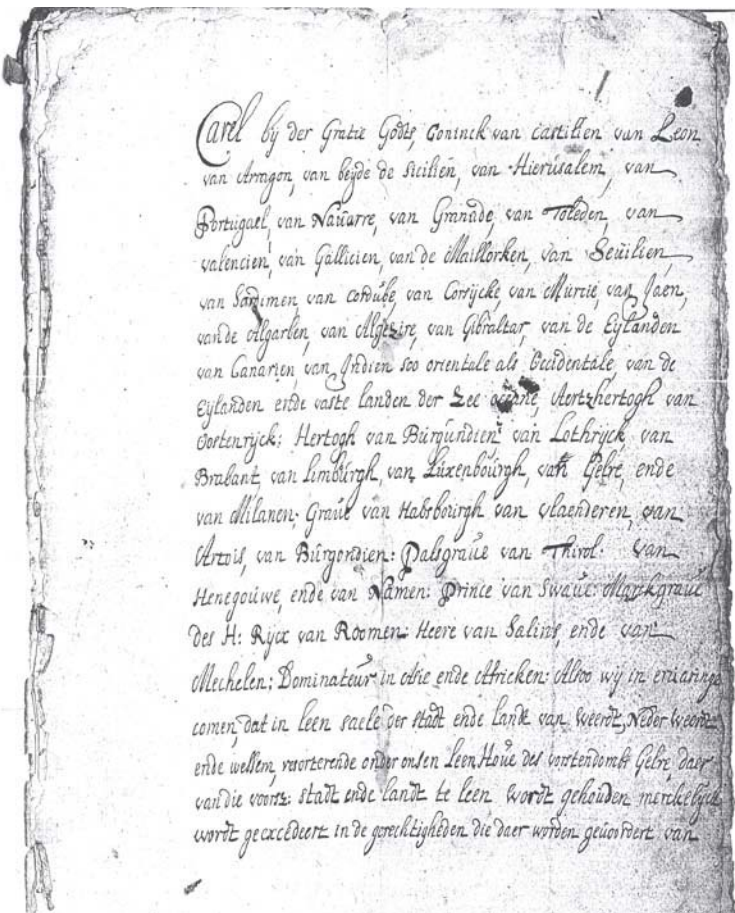 Carel by der Gratie Godts, Coninck van castilien van Leon
van Arragon, van beyde de Sicilien, van Hierusalem, van
Portugael, van Navarre, van Granade, van Toleden, van
valencien, van Gallicien, van de Maillorken, van Sevilien
van Sardinien, van Cordube, van Corsycke, van Murcie, van Jaen,
van de Algarben, van Algezire, van Gibraltar, van de Eylanden
van Canarien, van Indien soo orientale als Occidentale, van de
Eylanden ende vaste landen der Zee oceane, Aertzhertogh van
Oostenryck: Hertogh van Burgundien van Lothryck, van
Brabant, van Limburgh, van Luxenbourgh, van Gelre, ende
van Milanen: Grave van Habsbourgh van vlaenderen, van
Artois, van Burgondien: Palsgrave van Thirol: van
Henegouwe, ende van Namen: Prince van Swave: Marckgrave
des H: Rycx van Roomen: Heere van Salins, ende van
Mechelen; Dominateur in Asie ende Africken: Alsoo wy in ervaringe
comen, dat in leen saele der stadt ende landt van Weerdt, Neder Weerdt
ende wessem, resorterende onder onsen LeenHove des vorstendombs Gelre, daer
van die voorsz: stadt ende landt te leen wordt gehouden merckelyck
wordt geexcedeert in de gerechtigheden die daer worden gevoordert van